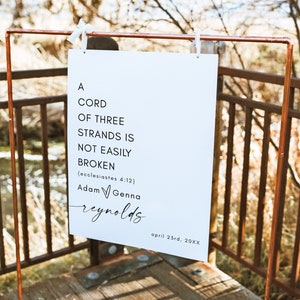 A
CORD
OF THREE
STRANDS IS
NOT EASILY
BROKEN
(ecclesiastes 4:12)
Adam Genna
reynolds
april 23rd, 20XX